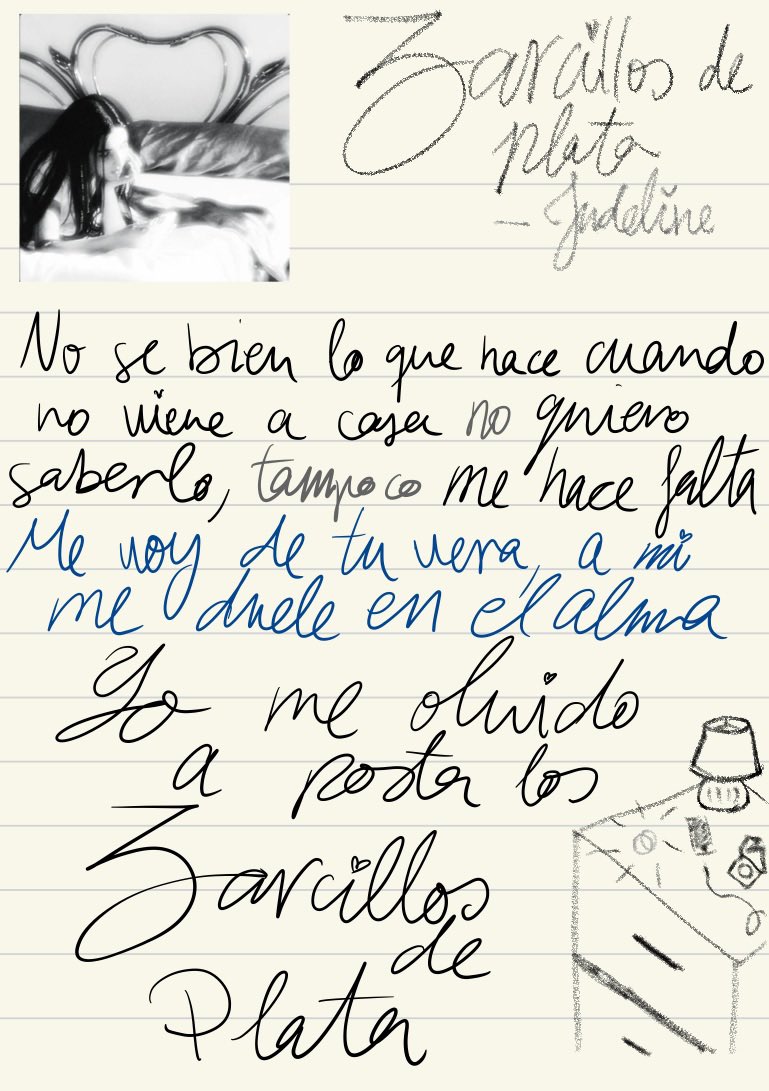 Zarcillos de
plata
– Judeline
No se bien lo que hace cuando
no viene a casa no quiero
saberlo, tampoco me hace falta
Me voy de tu vera, a mi
me duele en el alma
Yo me olvido
a posta los
Zarcillos
de
Plata